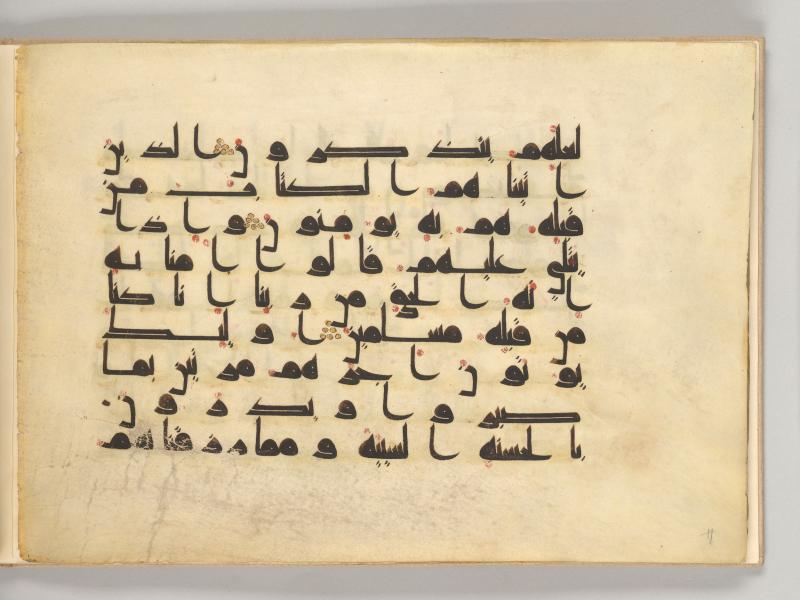 لعلهم يتذكرون الذين
اتينهم الكتب من
قبله هم به يومنون واذا
يتلى عليهم قالوا امنا به
انه الحق من ربنا انا كنا
من قبله مسلمين اولىك
يوتون اجرهم مرتين بما
صبروا ويدرون
بالحسنة السيئة ومما رزقنهم